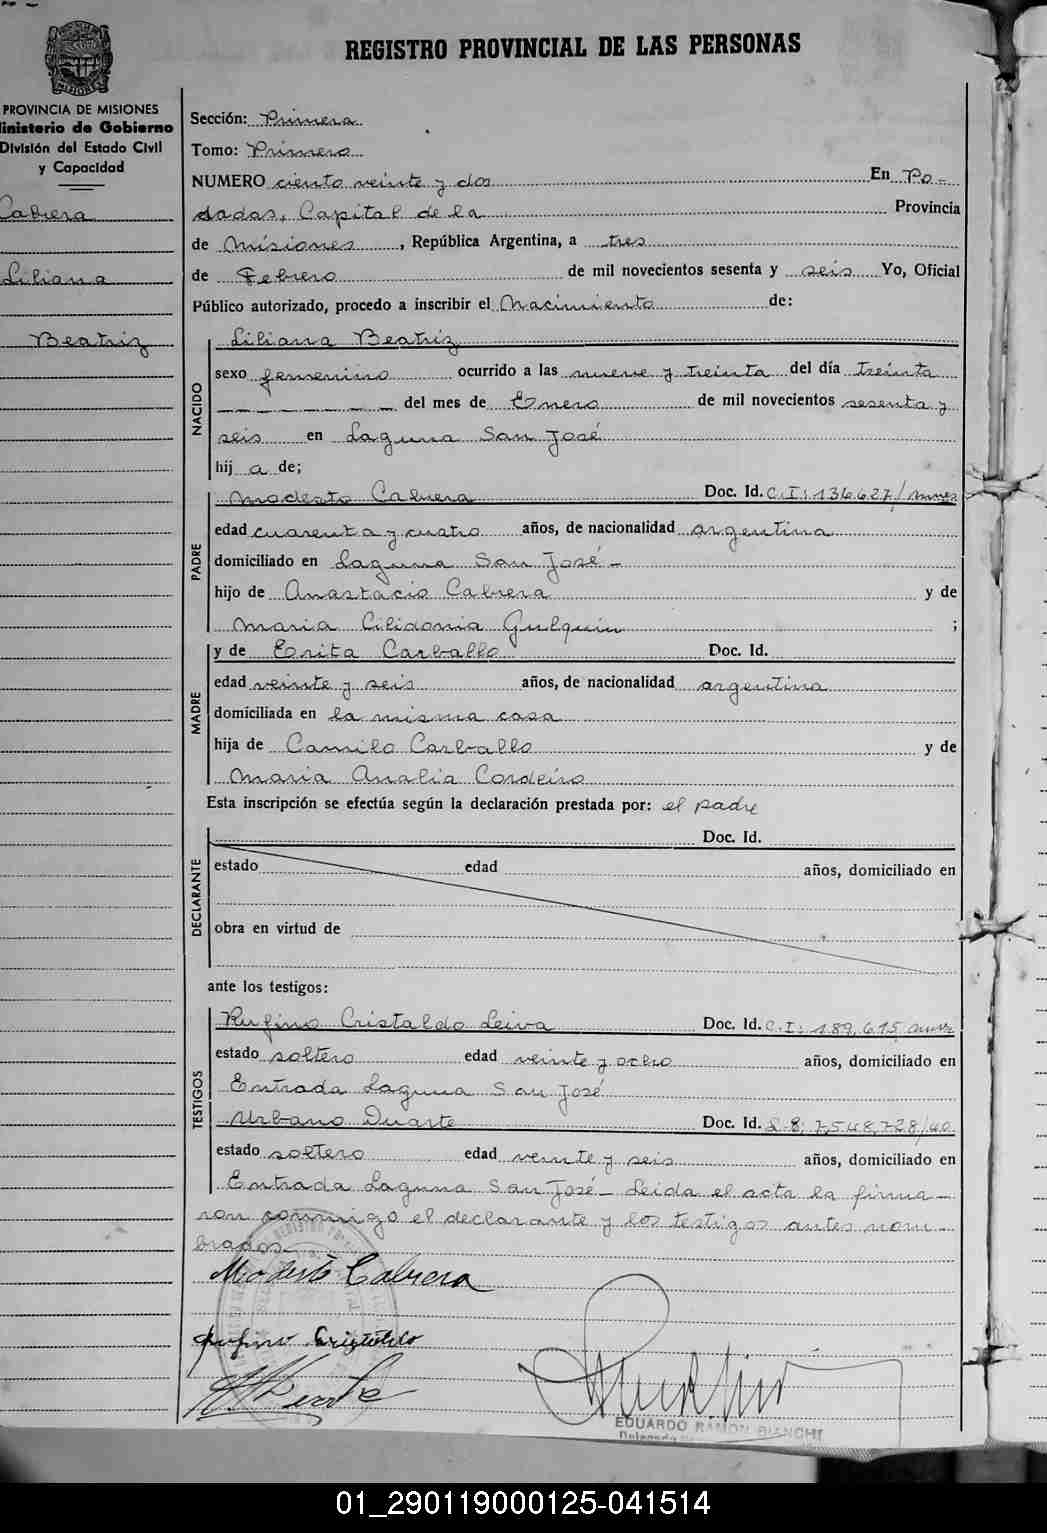 REGISTRO PROVINCIAL DE LAS PERSONAS
PROVINCIA DE MISIONES
inisterio de Gobierno
División del Estado Civil
y Capacidad
Cabrera
Liliana
Beatriz
Sección: Primera
Tomo: Primero
NUMERO ciento veinte y dos En Po-
sadas, Capital de la Provincia
de Misiones, República Argentina, a tres
de Febrero de mil novecientos sesenta y seis Yo, Oficial
Público autorizado, procedo a inscribir el Nacimiento de:
NACIDO
Liliana Beatriz
sexo femenino ocurrido a las nueve y treinta del día treinta
del mes de Enero de mil novecientos sesenta y
seis en Laguna San José
hij a de;
PADRE
Modesto Cabrera Doc. Id. C.I: 136.627/
edad cuarenta y cuatro años, de nacionalidad argentina
domiciliado en Laguna San José -
hijo de Anastacio Cabrera y de
Maria Cilidonia Gulquin ;
MADRE
y de Erita Carballo Doc. Id.
edad veinte y seis años, de nacionalidad argentina
domiciliada en la misma casa
hija de Camilo Carballo y de
Maria Analia Cordeiro
Esta inscripción se efectúa según la declaración prestada por: el padre
DECLARANTE
Doc. Id.
estado edad años, domiciliado en
obra en virtud de
ante los testigos:
TESTIGOS
Rufino Cristaldo Leiva Doc. Id. C.I: 189.615
estado soltero edad veinte y ocho años, domiciliado en
Entrada Laguna San José
Urbano Duarte Doc. Id. 7.548.728/40
estado soltero edad veinte y seis años, domiciliado en
Entrada Laguna San José - Leida el acta la firma-
ron conmigo el declarante y los testigos antes nom-
brados.
Modesto Cabrera
Rufino Cristaldo
EDUARDO RAMON BIANCHI
01_290119000125-041514